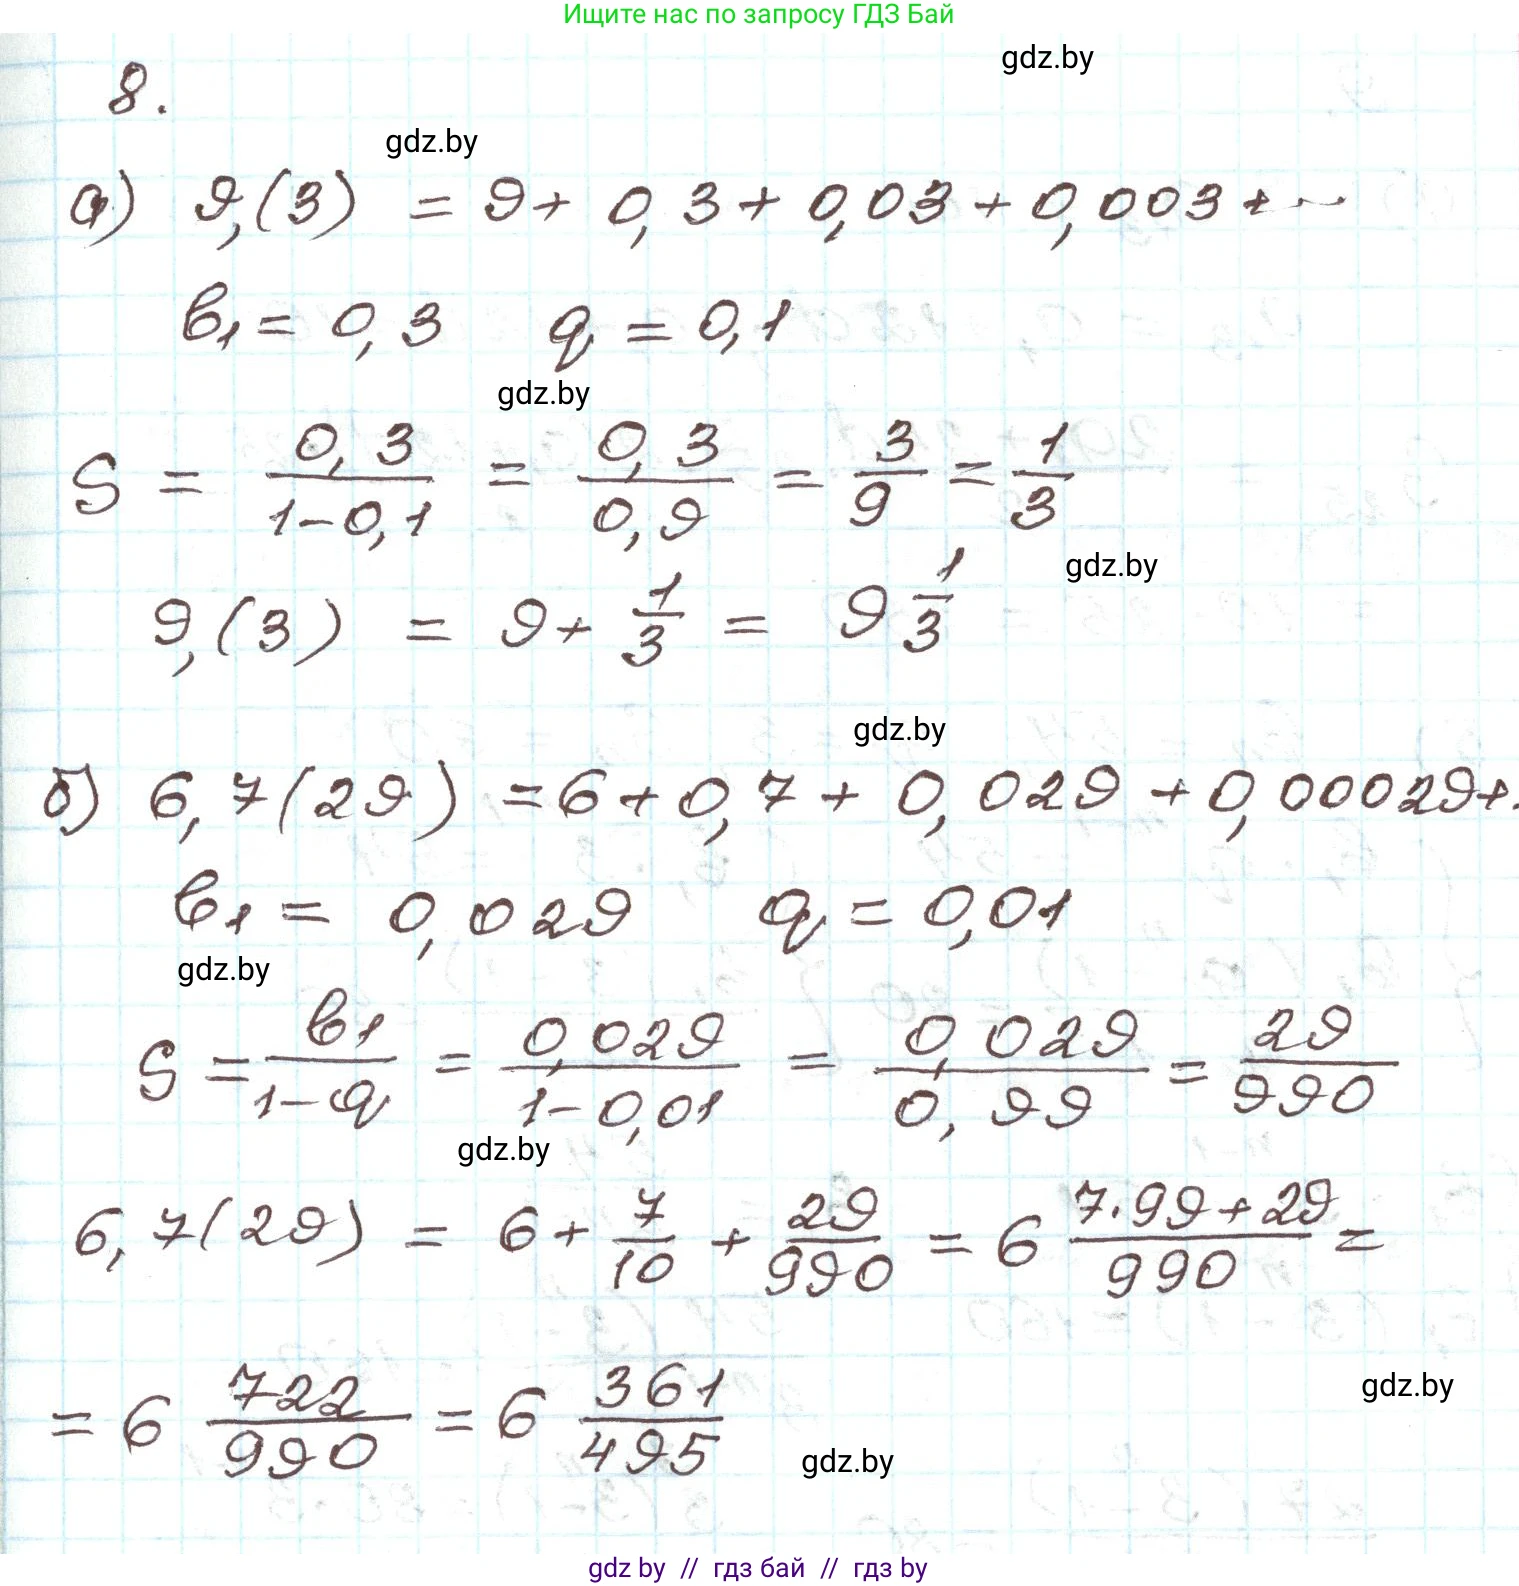 Ищите нас по запросу ГДЗ Бай
gdz.by
8.
gdz.by
а) 9,(3) = 9 + 0,3 + 0,03 + 0,003 + ...
b₁ = 0,3 q = 0,1
gdz.by
S = 0,3/(1-0,1) = 0,3/0,9 = 3/9 = 1/3
gdz.by
9,(3) = 9 + 1/3 = 9 1/3
gdz.by
б) 6,7(29) = 6 + 0,7 + 0,029 + 0,00029 + .
b₁ = 0,029 q = 0,01
gdz.by
S = b₁/(1-q) = 0,029/(1-0,01) = 0,029/0,99 = 29/990
gdz.by
6,7(29) = 6 + 7/10 + 29/990 = 6 (7·99+29)/990 =
gdz.by
= 6 722/990 = 6 361/495
gdz.by
gdz by // гдз бай // гдз by